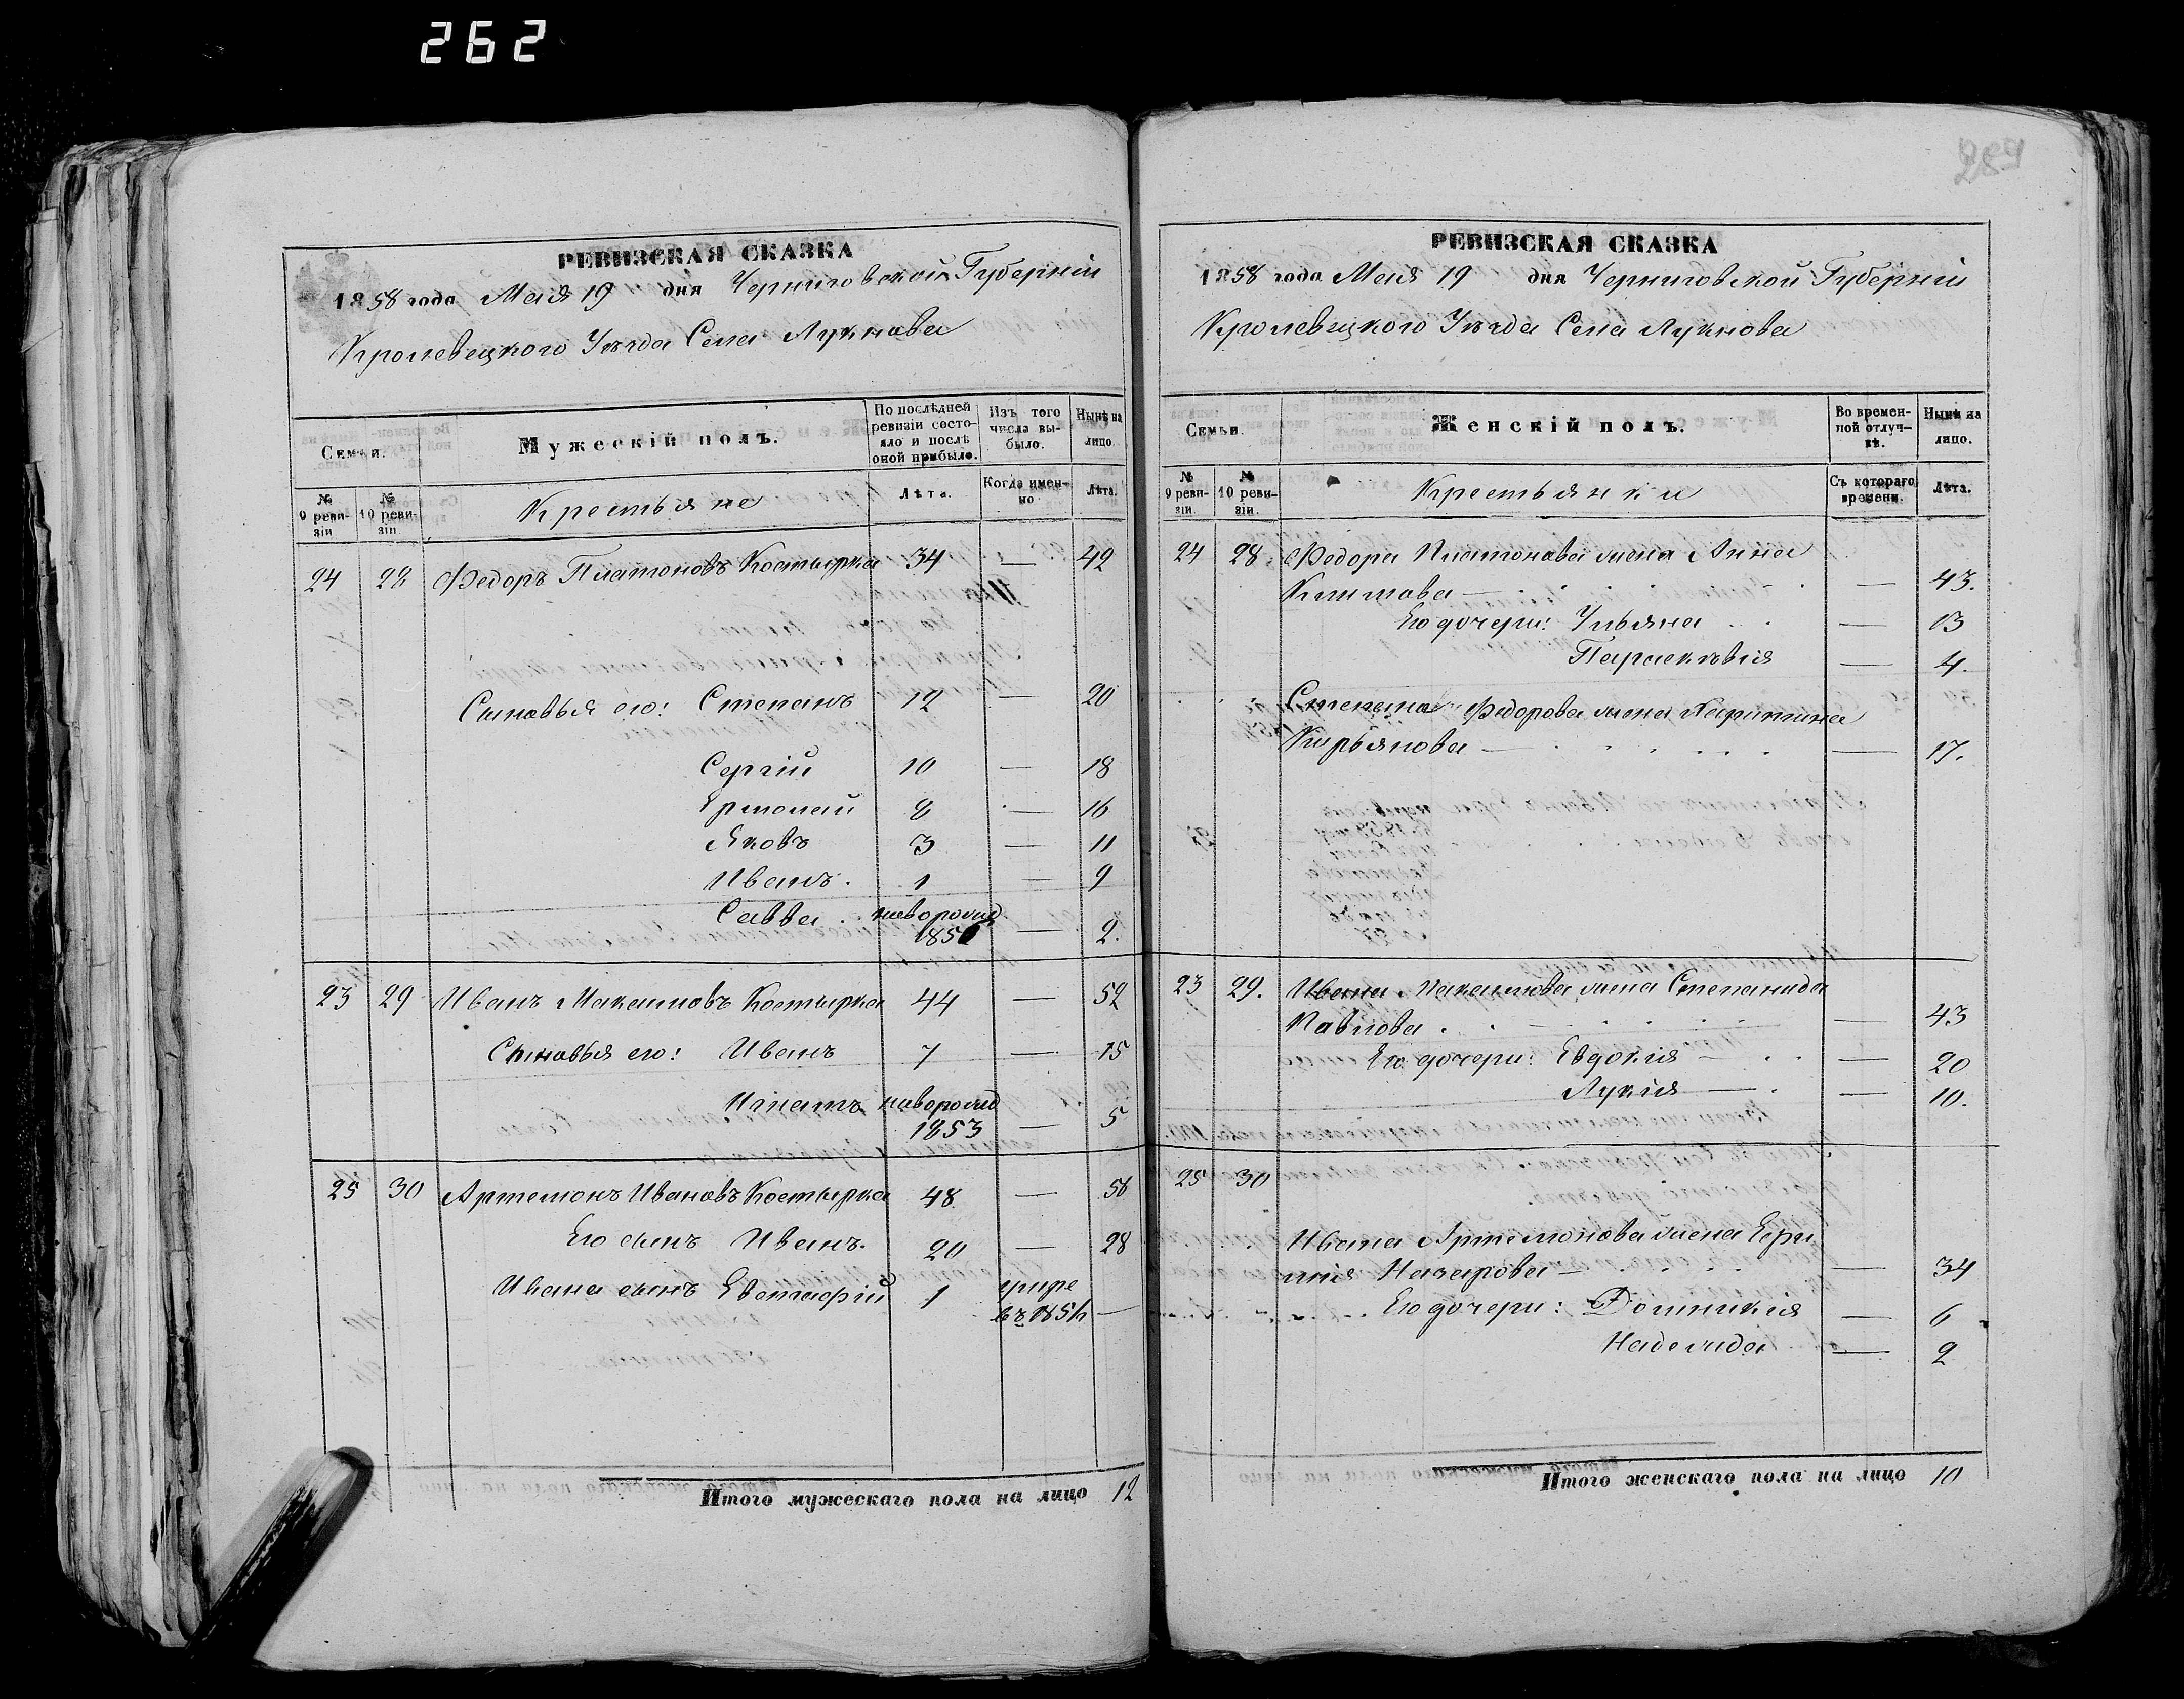 262
РЕВИЗСКАЯ СКАЗКА
1858 года Мая 19 дня Черниговской Губерніи
Кролевецкого Уѣзда Села Лукнова
Семьи.
Мужескій полъ.
По послѣдней ревизіи состояло и послѣ оной прибыло.
Изъ того числа выбыло.
Нынѣ на лицо.
№ 9 ревизіи
№ 10 ревизіи
Крестьяне
Лѣта.
Когда именно
Лѣта.
24 28 Федоръ Платоновъ Костырка 34 — 42
Сыновья его: Степанъ 12 — 20
Сергій 10 — 18
Ермолай 8 — 16
Яковъ 3 — 11
Иванъ. 1 — 9
Савва . новорожд 1856 — 2.
23 29 Иванъ Максимовъ Костырка 44 — 52
Сыновья его: Иванъ 7 — 15
Игнатъ новорожд 1853 — 5
25 30 Артемонъ Ивановъ Костырка 48 — 56
Его сынъ Иванъ. 20 — 28
Ивана сынъ Евстафій 1 умре въ 185 —
Итого мужескаго пола на лицо 12
289
РЕВИЗСКАЯ СКАЗКА
1858 года Мая 19 дня Черниговской Губерніи
Кролевецкого Уѣзда Села Лукнова
Семьи.
Женскій полъ.
Во временной отлучкѣ.
Нынѣ на лицо.
№ 9 ревизіи.
№ 10 ревизіи.
Крестьянки
Съ котораго времени.
Лѣта.
24 28. Федора Платонова жена Анна
Климова — — 43.
Его дочери: Ульяна . . — 13
Параскѣвія — 4.
Степана Федорова жена Харитина
Кирьянова — — 17.
23 29. Ивана Максимова жена Степанида
Павлова . . — — 43
Его дочери: Евдокія — . . — 20
Лукія — . — 10.
25 30
Ивана Артемонова жена Евфи
мія Назарова — — 34
Его дочери: Домникія — 6
Надежда — 2
Итого женскаго пола на лицо 10